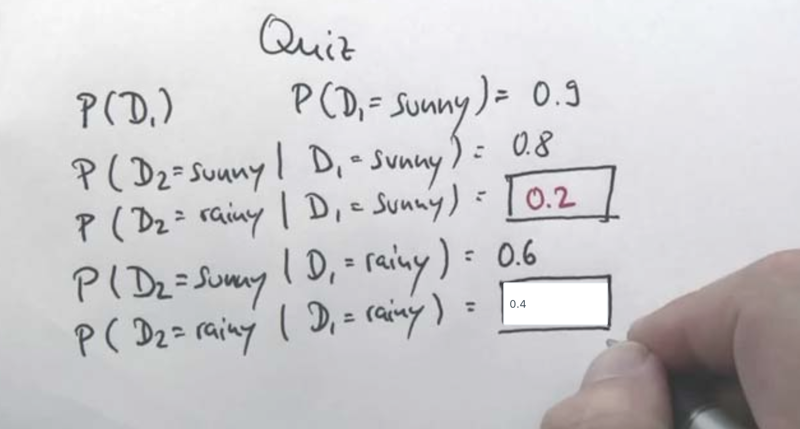 Quiz
P(D₁) P(D₁ = sunny) = 0.9
P(D₂ = sunny | D₁ = sunny) = 0.8
P(D₂ = rainy | D₁ = sunny) = 0.2
P(D₂ = sunny | D₁ = rainy) = 0.6
P(D₂ = rainy | D₁ = rainy) = 0.4